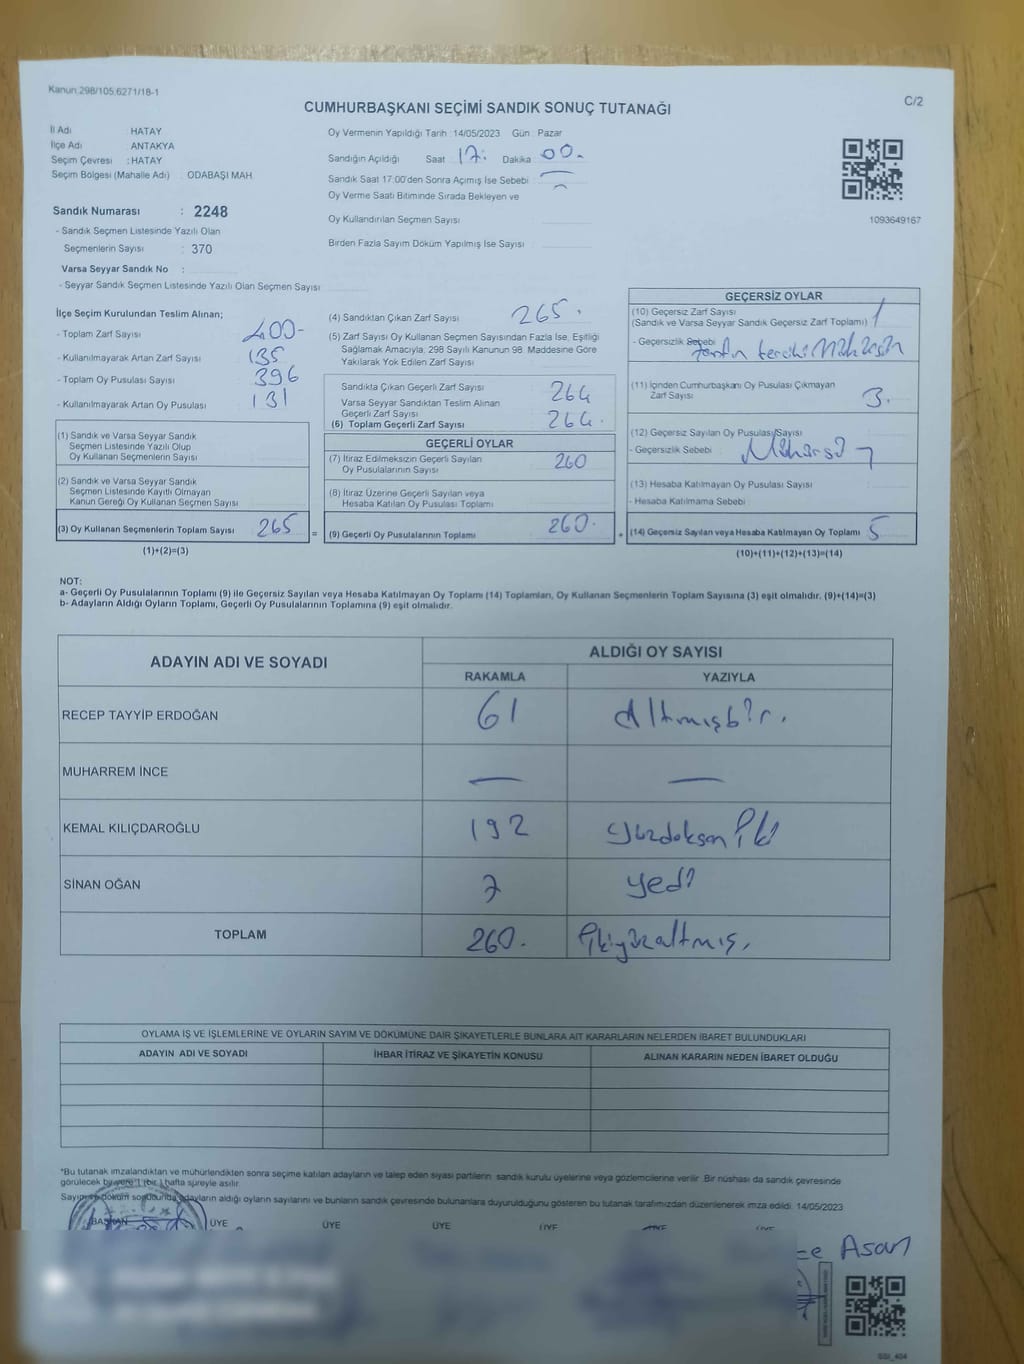 Kanun 298/105,6271/18-1
C/2
CUMHURBAŞKANI SEÇİMİ SANDIK SONUÇ TUTANAĞI
İl Adı : HATAY
İlçe Adı : ANTAKYA
Seçim Çevresi : HATAY
Seçim Bölgesi (Mahalle Adı) : ODABAŞI MAH.
Sandık Numarası : 2248
- Sandık Seçmen Listesinde Yazılı Olan
Seçmenlerin Sayısı : 370
Varsa Seyyar Sandık No :
- Seyyar Sandık Seçmen Listesinde Yazılı Olan Seçmen Sayısı
Oy Vermenin Yapıldığı Tarih : 14/05/2023 Gün : Pazar
Sandığın Açıldığı Saat 17: Dakika 00.
Sandık Saat 17:00'den Sonra Açımış İse Sebebi :
Oy Verme Saati Bitiminde Sırada Bekleyen ve
Oy Kullandırılan Seçmen Sayısı :
Birden Fazla Sayım Döküm Yapılmış İse Sayısı :
1093649167
İlçe Seçim Kurulundan Teslim Alınan;
- Toplam Zarf Sayısı : 400-
- Kullanılmayarak Artan Zarf Sayısı : 135
- Toplam Oy Pusulası Sayısı : 396
- Kullanılmayarak Artan Oy Pusulası : 131
(1) Sandık ve Varsa Seyyar Sandık
Seçmen Listesinde Yazılı Olup
Oy Kullanan Seçmenlerin Sayısı :
(2) Sandık ve Varsa Seyyar Sandık
Seçmen Listesinde Kayıtlı Olmayan
Kanun Gereği Oy Kullanan Seçmen Sayısı
(3) Oy Kullanan Seçmenlerin Toplam Sayısı 265 =
(1)+(2)=(3)
(4) Sandıktan Çıkan Zarf Sayısı : 265.
(5) Zarf Sayısı Oy Kullanan Seçmen Sayısından Fazla İse, Eşitliği
Sağlamak Amacıyla, 298 Sayılı Kanunun 98. Maddesine Göre
Yakılarak Yok Edilen Zarf Sayısı :
Sandıkta Çıkan Geçerli Zarf Sayısı : 264
Varsa Seyyar Sandıktan Teslim Alınan
Geçerli Zarf Sayısı :
(6) Toplam Geçerli Zarf Sayısı : 264.
GEÇERLİ OYLAR
(7) İtiraz Edilmeksizin Geçerli Sayılan
Oy Pusulalarının Sayısı : 260
(8) İtiraz Üzerine Geçerli Sayılan veya
Hesaba Katılan Oy Pusulası Toplamı :
(9) Geçerli Oy Pusulalarının Toplamı : 260. +
GEÇERSİZ OYLAR
(10) Geçersiz Zarf Sayısı : 1
(Sandık ve Varsa Seyyar Sandık Geçersiz Zarf Toplamı)
- Geçersizlik Sebebi :
(11) İçinden Cumhurbaşkanı Oy Pusulası Çıkmayan
Zarf Sayısı : 3.
(12) Geçersiz Sayılan Oy Pusulası Sayısı :
- Geçersizlik Sebebi :
(13) Hesaba Katılmayan Oy Pusulası Sayısı :
- Hesaba Katılmama Sebebi :
(14) Geçersiz Sayılan veya Hesaba Katılmayan Oy Toplamı : 5
(10)+(11)+(12)+(13)=(14)
NOT:
a- Geçerli Oy Pusulalarının Toplamı (9) ile Geçersiz Sayılan veya Hesaba Katılmayan Oy Toplamı (14) Toplamları, Oy Kullanan Seçmenlerin Toplam Sayısına (3) eşit olmalıdır. (9)+(14)=(3)
b- Adayların Aldığı Oyların Toplamı, Geçerli Oy Pusulalarının Toplamına (9) eşit olmalıdır.
ADAYIN ADI VE SOYADI
ALDIĞI OY SAYISI
RAKAMLA YAZIYLA
RECEP TAYYİP ERDOĞAN 61 Altmışbir.
MUHARREM İNCE — —
KEMAL KILIÇDAROĞLU 192 Yüzdoksan iki
SİNAN OĞAN 7 yedi
TOPLAM 260. ikiyüzaltmış.
OYLAMA İŞ VE İŞLEMLERİNE VE OYLARIN SAYIM VE DÖKÜMÜNE DAİR ŞİKAYETLERLE BUNLARA AİT KARARLARIN NELERDEN İBARET BULUNDUKLARI
ADAYIN ADI VE SOYADI İHBAR İTİRAZ VE ŞİKAYETİN KONUSU ALINAN KARARIN NEDEN İBARET OLDUĞU
*Bu tutanak imzalandıktan ve mühürlendikten sonra seçime katılan adayların ve talep eden siyasi partilerin sandık kurulu üyelerine veya gözlemcilerine verilir. Bir nüshası da sandık çevresinde
görülecek bir yere 1 (bir ) hafta süreyle asılır.
Sayım ve döküm sonucunda adayların aldığı oyların sayılarını ve bunların sandık çevresinde bulunanlara duyurulduğunu gösteren bu tutanak tarafımızdan düzenlenerek imza edildi. 14/05/2023
BAŞKAN ÜYE ÜYE ÜYE ÜYE
Asan